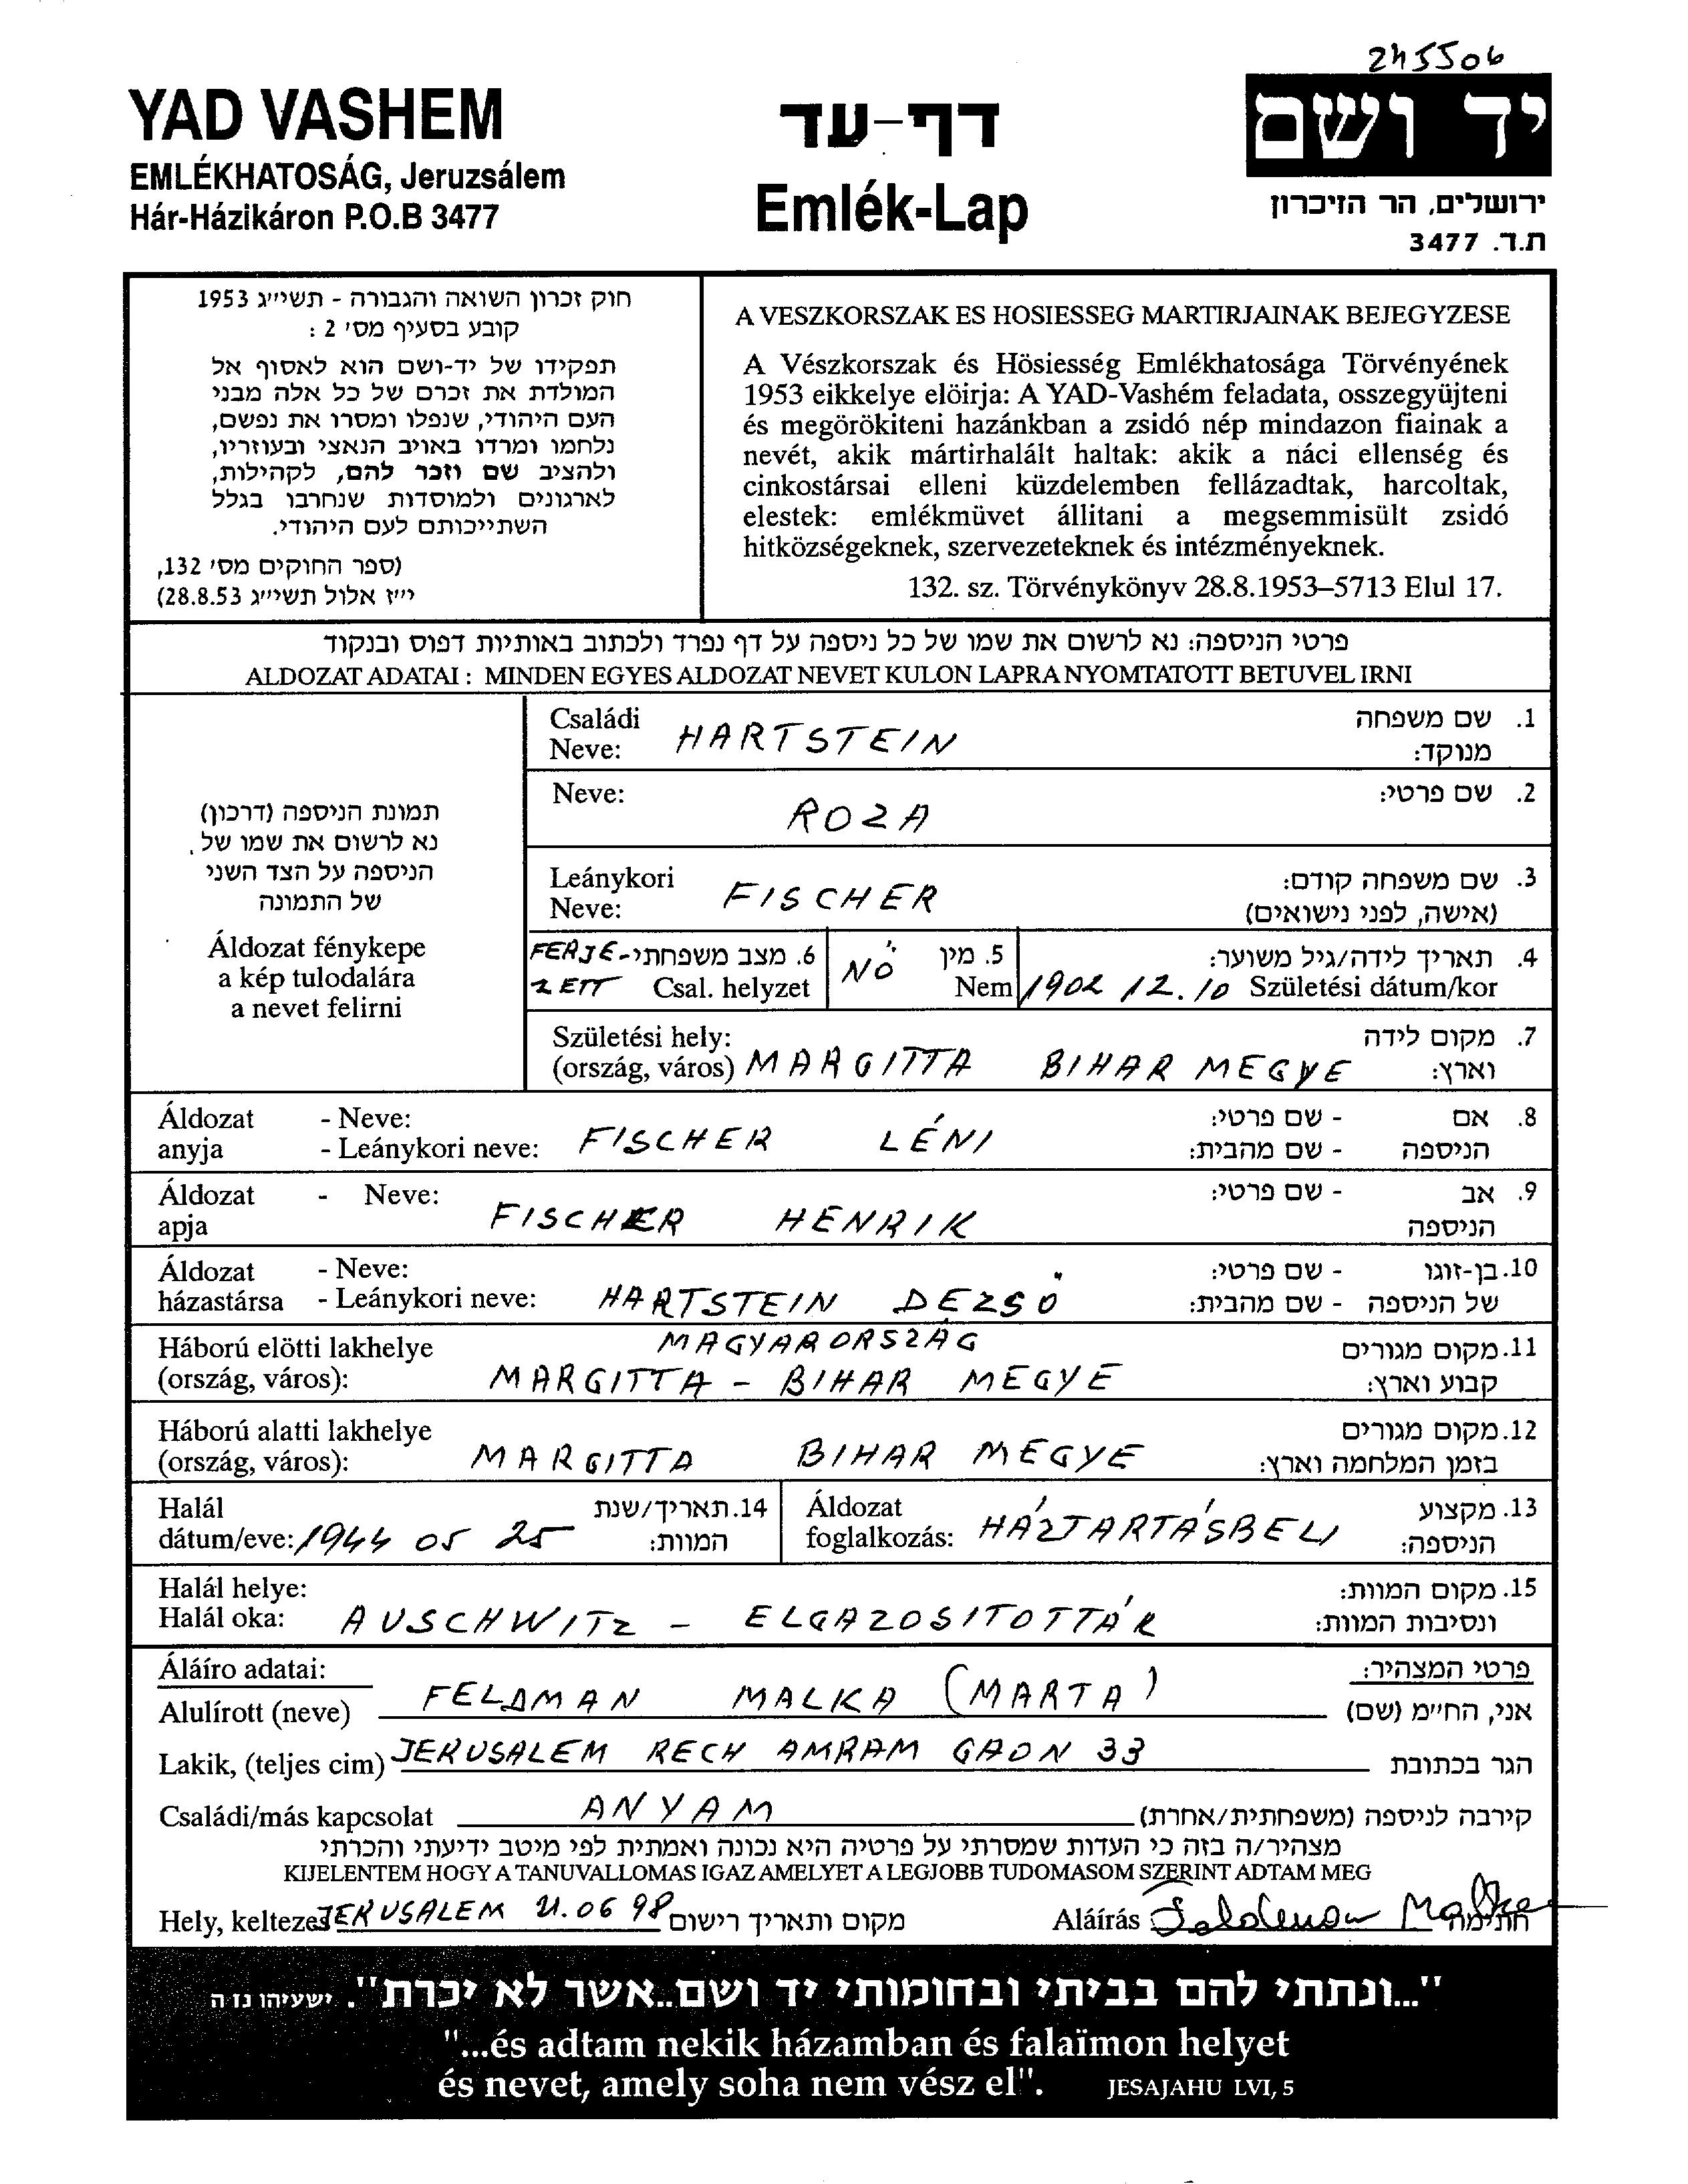 245506
YAD VASHEM
EMLÉKHATOSÁG, Jeruzsálem
Hár-Házikáron P.O.B 3477
דף-עד
Emlék-Lap
יד ושם
ירושלים, הר הזיכרון
ת.ד. 3477
חוק זכרון השואה והגבורה - תשי"ג 1953
קובע בסעיף מס' 2 :
תפקידו של יד-ושם הוא לאסוף אל
המולדת את זכרם של כל אלה מבני
העם היהודי, שנפלו ומסרו את נפשם,
נלחמו ומרדו באויב הנאצי ובעוזריו,
ולהציב שם וזכר להם, לקהילות,
לארגונים ולמוסדות שנחרבו בגלל
השתייכותם לעם היהודי.
(ספר החוקים מס' 132,
י"ז אלול תשי"ג 28.8.53)
A VESZKORSZAK ES HOSIESSEG MARTIRJAINAK BEJEGYZESE
A Vészkorszak és Hösiesség Emlékhatosága Törvényének
1953 eikkelye elöirja: A YAD-Vashém feladata, osszegyüjteni
és megörökiteni hazánkban a zsidó nép mindazon fiainak a
nevét, akik mártirhalált haltak: akik a náci ellenség és
cinkostársai elleni küzdelemben fellázadtak, harcoltak,
elestek: emlékmüvet állitani a megsemmisült zsidó
hitközségeknek, szervezeteknek és intézményeknek.
132. sz. Törvénykönyv 28.8.1953–5713 Elul 17.
פרטי הניספה: נא לרשום את שמו של כל ניספה על דף נפרד ולכתוב באותיות דפוס ובנקוד
ALDOZAT ADATAI : MINDEN EGYES ALDOZAT NEVET KULON LAPRA NYOMTATOTT BETUVEL IRNI
תמונת הניספה (דרכון)
נא לרשום את שמו של
הניספה על הצד השני
של התמונה
Áldozat fénykepe
a kép tulodalára
a nevet felirni
Családi
Neve: HARTSTEIN
1. שם משפחה
מנוקד:
Neve: ROZA
2. שם פרטי:
Leánykori
Neve: FISCHER
3. שם משפחה קודם:
(אישה, לפני נישואים)
FERJE- 6. מצב משפחתי
ZETT Csal. helyzet
NŐ 5. מין
Nem
4. תאריך לידה/גיל משוער:
1902 12. 10 Születési dátum/kor
Születési hely:
(ország, város) MARGITTA BIHAR MEGYE
7. מקום לידה
וארץ:
Áldozat - Neve:
anyja - Leánykori neve: FISCHER LÉNI
8. אם - שם פרטי:
הניספה - שם מהבית:
Áldozat - Neve:
apja FISCHER HENRIK
9. אב - שם פרטי:
הניספה
Áldozat - Neve:
házastársa - Leánykori neve: HARTSTEIN DEZSÖ
10. בן-זוגו - שם פרטי:
של הניספה - שם מהבית:
Háború elötti lakhelye MAGYARORSZÁG
(ország, város): MARGITTA - BIHAR MEGYE
11. מקום מגורים
קבוע וארץ:
Háború alatti lakhelye
(ország, város): MARGITTA BIHAR MEGYE
12. מקום מגורים
בזמן המלחמה וארץ:
Halál
dátum/eve: 1944 05 25
14. תאריך/שנת
המוות:
Áldozat
foglalkozás: HÁZTARTÁSBELI
13. מקצוע
הניספה:
Halál helye:
Halál oka: AUSCHWITZ - ELGAZOSITOTTÁK
15. מקום המוות:
ונסיבות המוות:
Áláíro adatai:
פרטי המצהיר:
Alulírott (neve) FELDMAN MALKA (MARTA) אני, הח"מ (שם)
Lakik, (teljes cim) JERUSALEM RECH AMRAM GAON 33 הגר בכתובת
Családi/más kapcsolat ANYAM קירבה לניספה (משפחתית/אחרת)
מצהיר/ה בזה כי העדות שמסרתי על פרטיה היא נכונה ואמתית לפי מיטב ידיעתי והכרתי
KIJELENTEM HOGY A TANUVALLOMAS IGAZ AMELYET A LEGJOBB TUDOMASOM SZERINT ADTAM MEG
Hely, keltezes JERUSALEM 21.06 98 מקום ותאריך רישום Aláírás Feldman Malka חתימה
"...ונתתי להם בביתי ובחומותי יד ושם..אשר לא יכרת". ישעיהו נו ה
"...és adtam nekik házamban és falaïmon helyet
és nevet, amely soha nem vész el". JESAJAHU LVI, 5